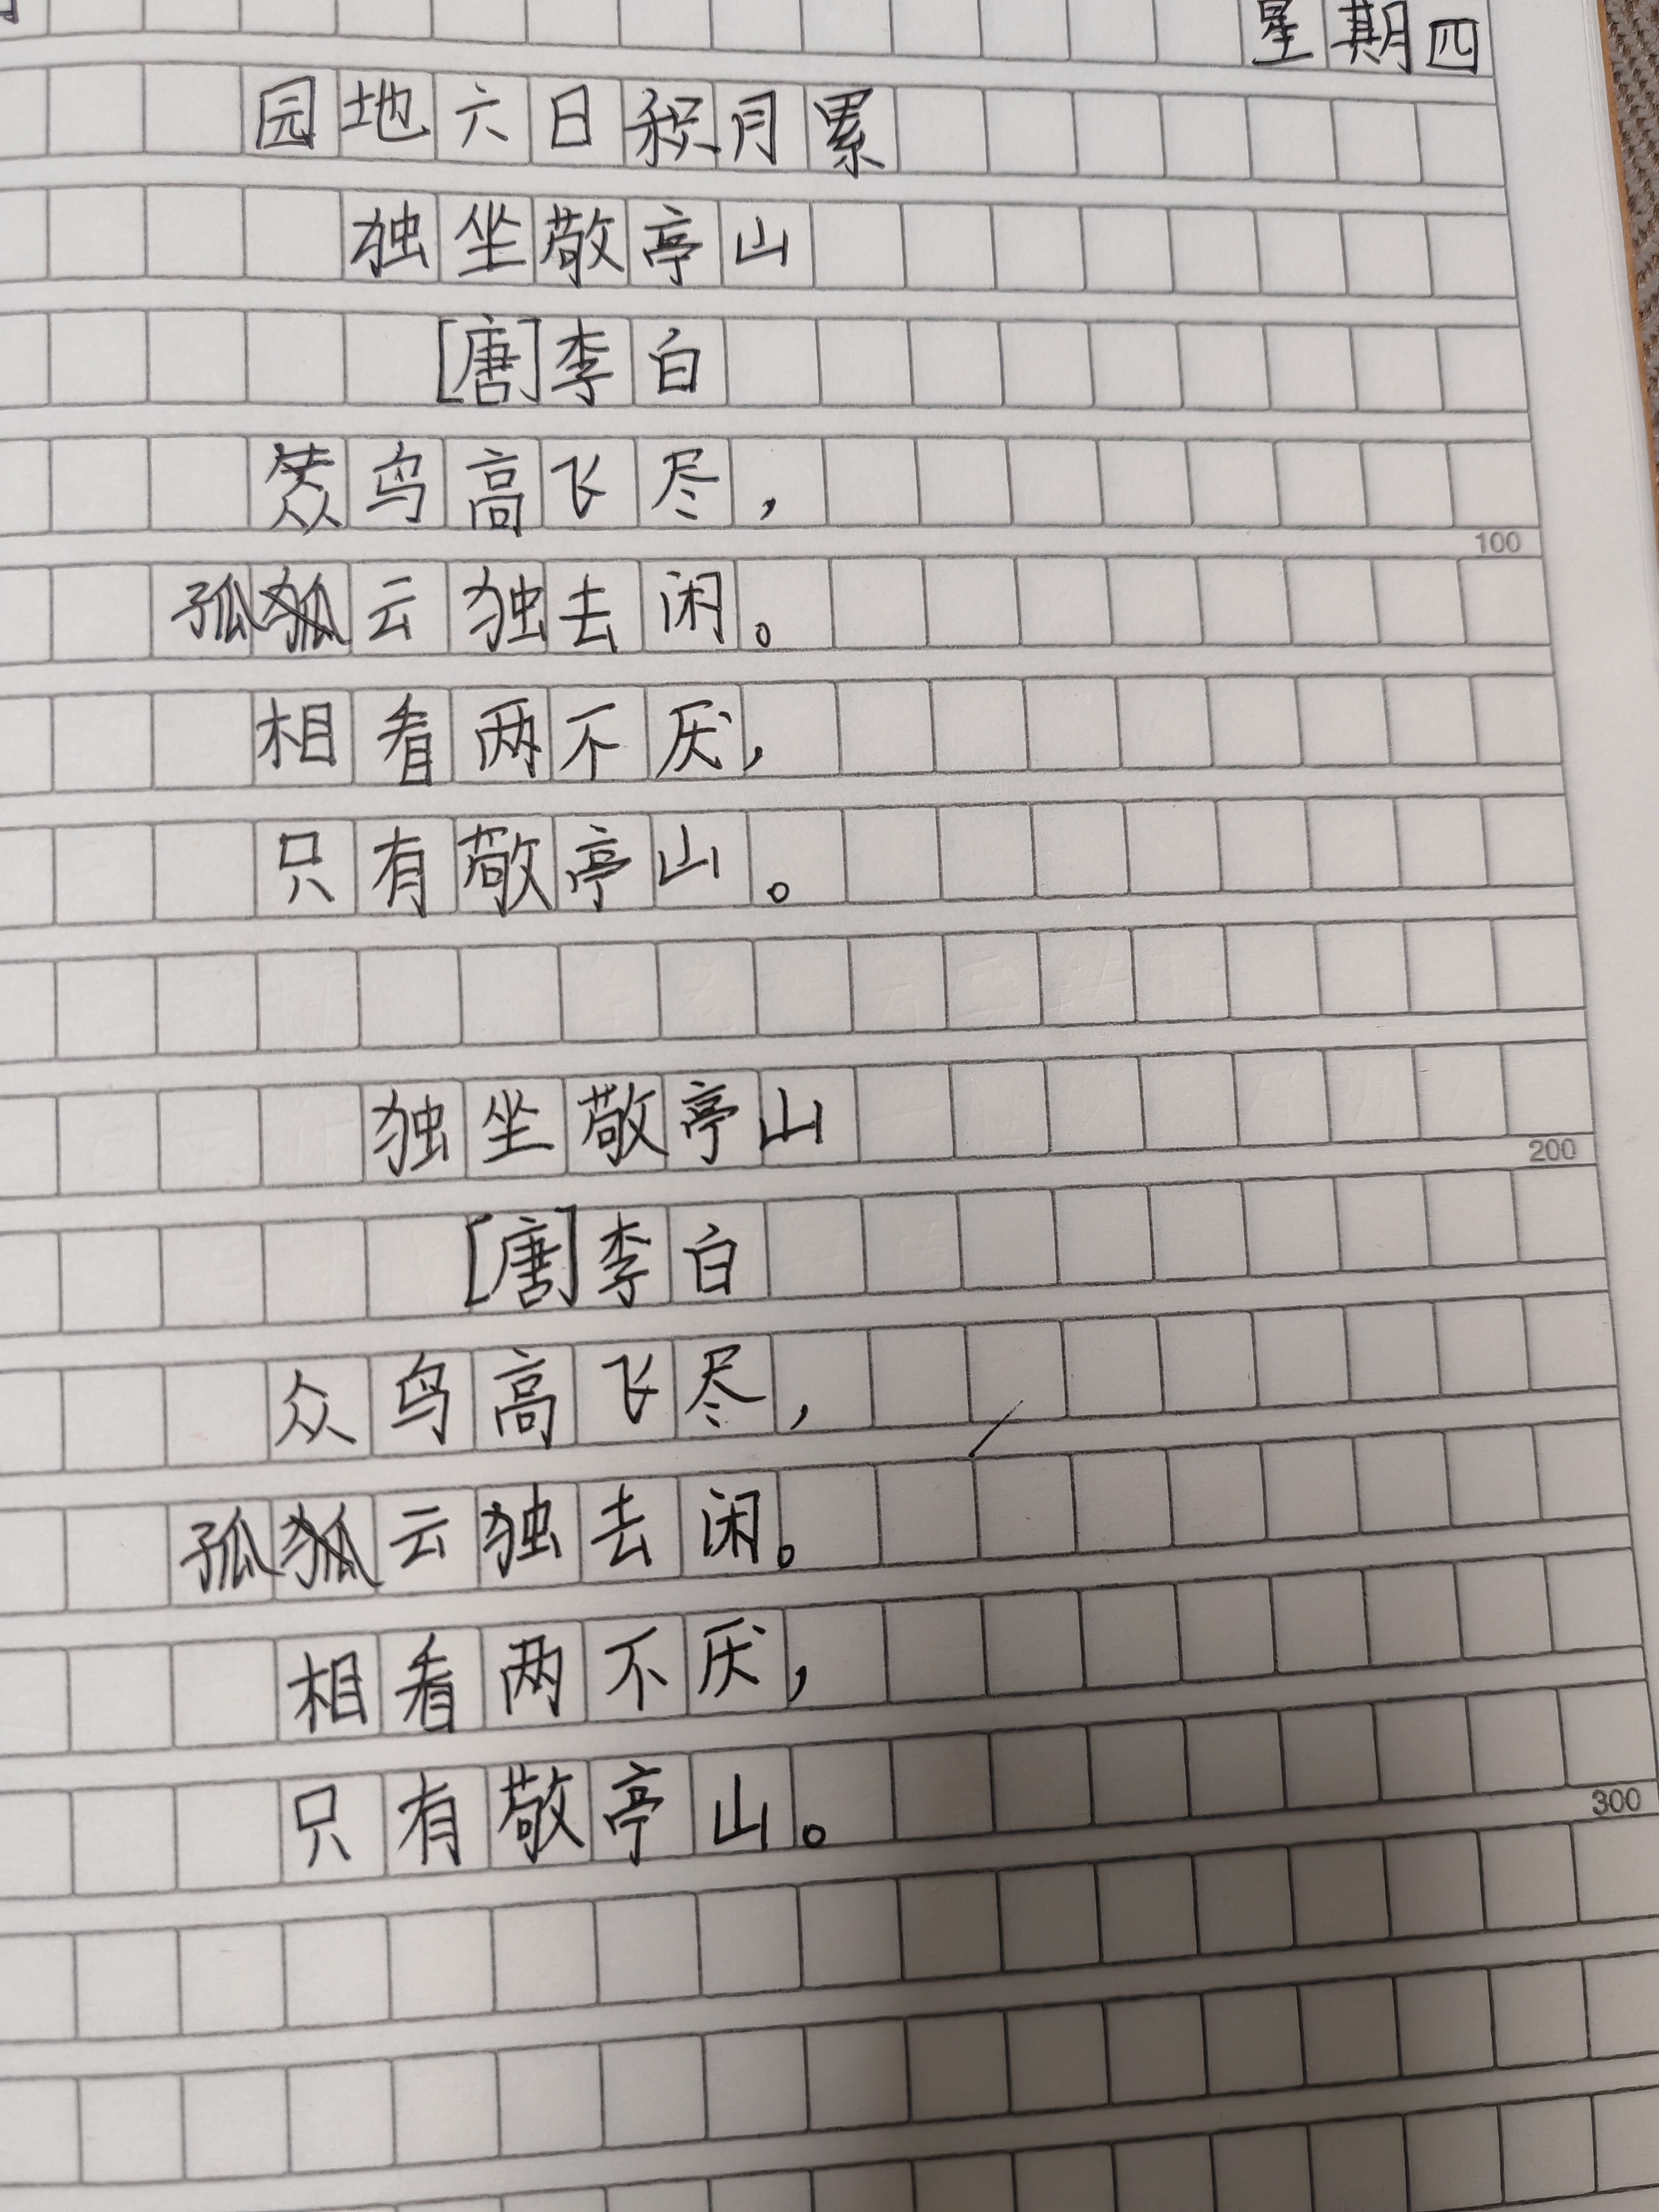 星期四
园地六日积月累
独坐敬亭山
[唐]李白
众鸟高飞尽，
孤云独去闲。
相看两不厌，
只有敬亭山。
100
独坐敬亭山
200
[唐]李白
众鸟高飞尽，
孤云独去闲。
相看两不厌，
只有敬亭山。
300